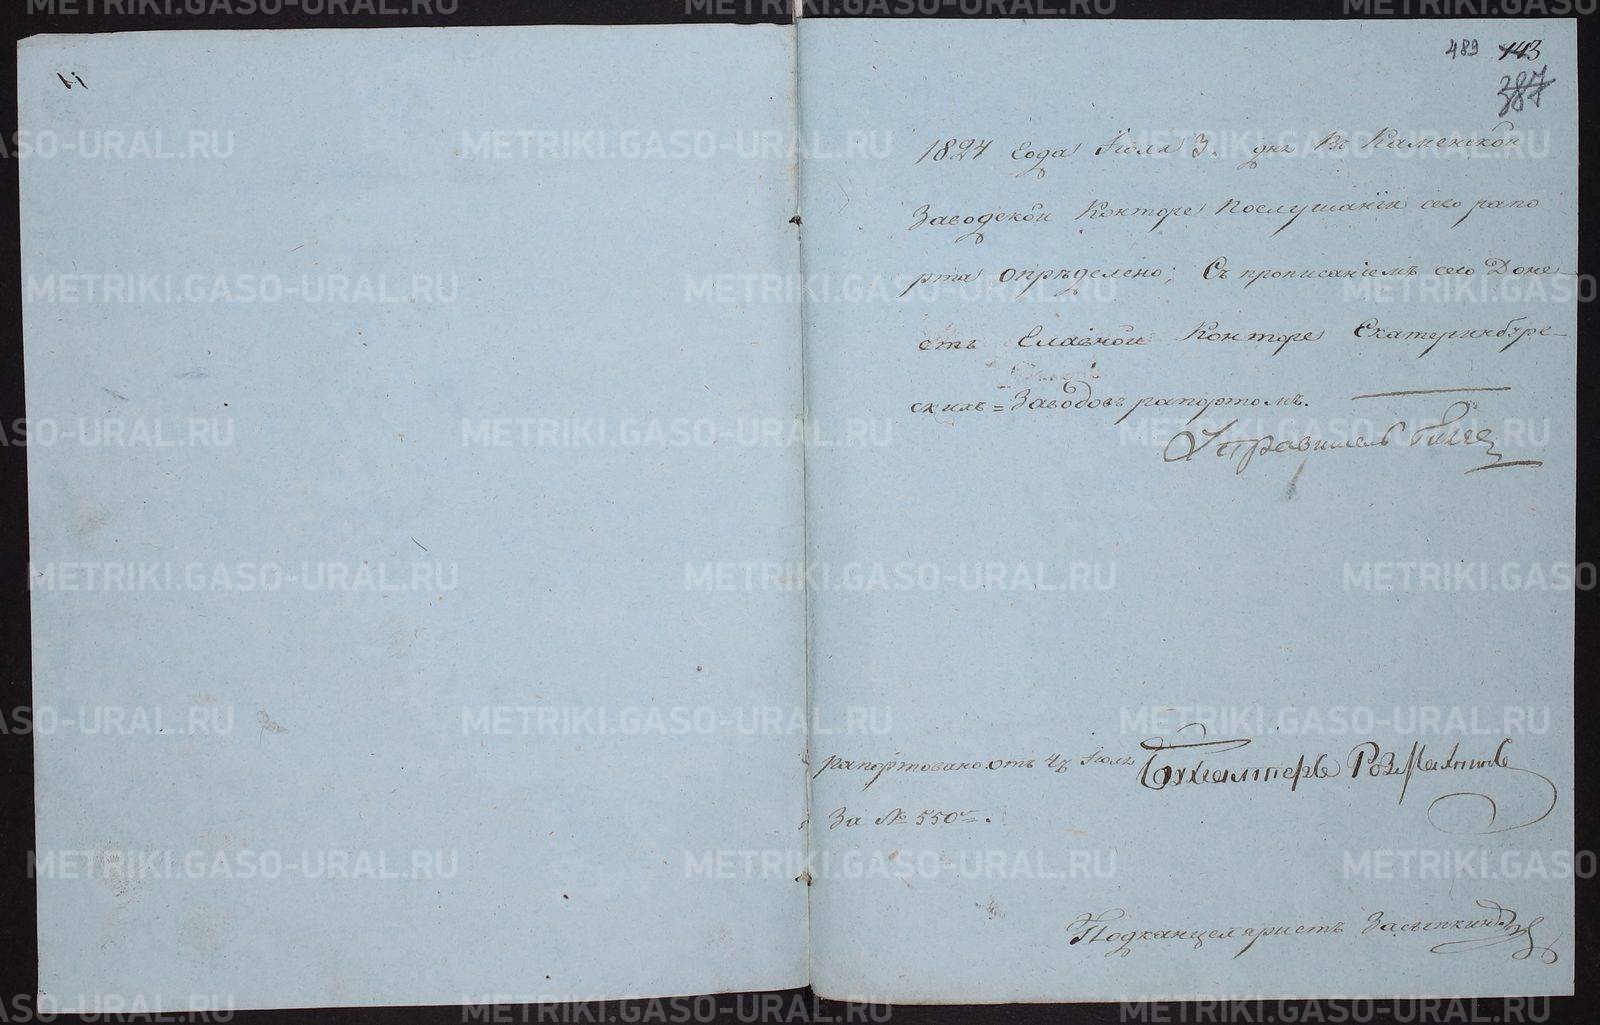 489 143
387
1827 года Іюля 3. дня Въ Каменской
Заводской Конторе Послушаніи сего рапо
рта опрѣделено; Съ прописаніемъ сего Доне-
сть Главной Конторе Екатеринбург-
скихъ = Заводовъ рапортомъ.
Управитель
рапортовано отъ 4ъ Іюля Бухгалтеръ
За № 550м.
Подканцеляристъ Засыпкинъ
METRIKI.GASO-URAL.RU